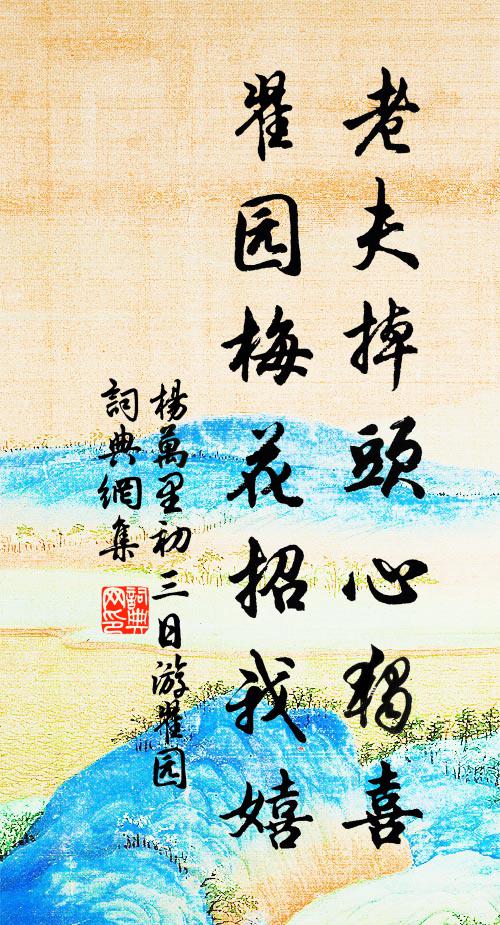 老夫掉頭心獨喜
瞿园梅花招我嬉
楊萬里初三日游瞿园
詞典網集
詞典
网印